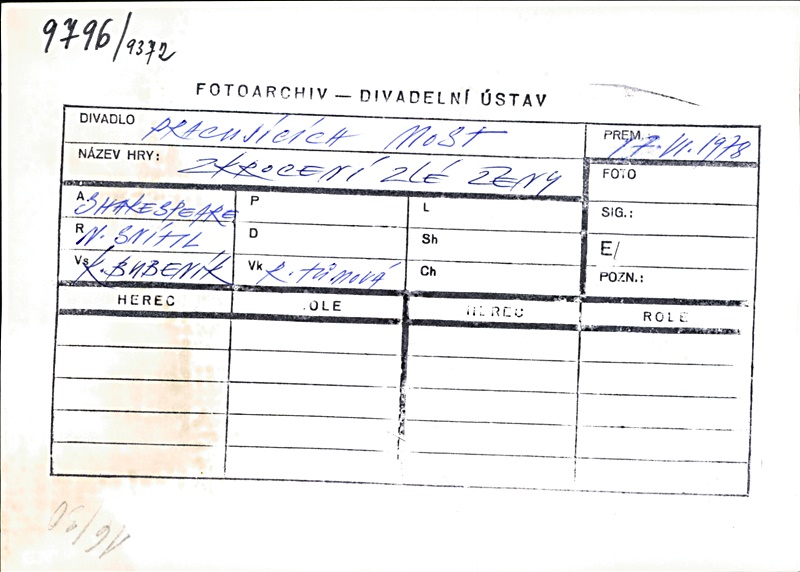 9796/9372
FOTOARCHIV — DIVADELNÍ ÚSTAV
DIVADLO PRACUJÍCÍCH MOST
PREM. 17.VI.1978
NÁZEV HRY: ZKROCENÍ ZLÉ ŽENY
FOTO
A SHAKESPEARE P L
SIG.:
R N. SNÍTIL D Sh
E/
Vs K. BUBENÍK Vk R. TŮMOVÁ Ch
POZN.:
HEREC ROLE HEREC ROLE
16/20